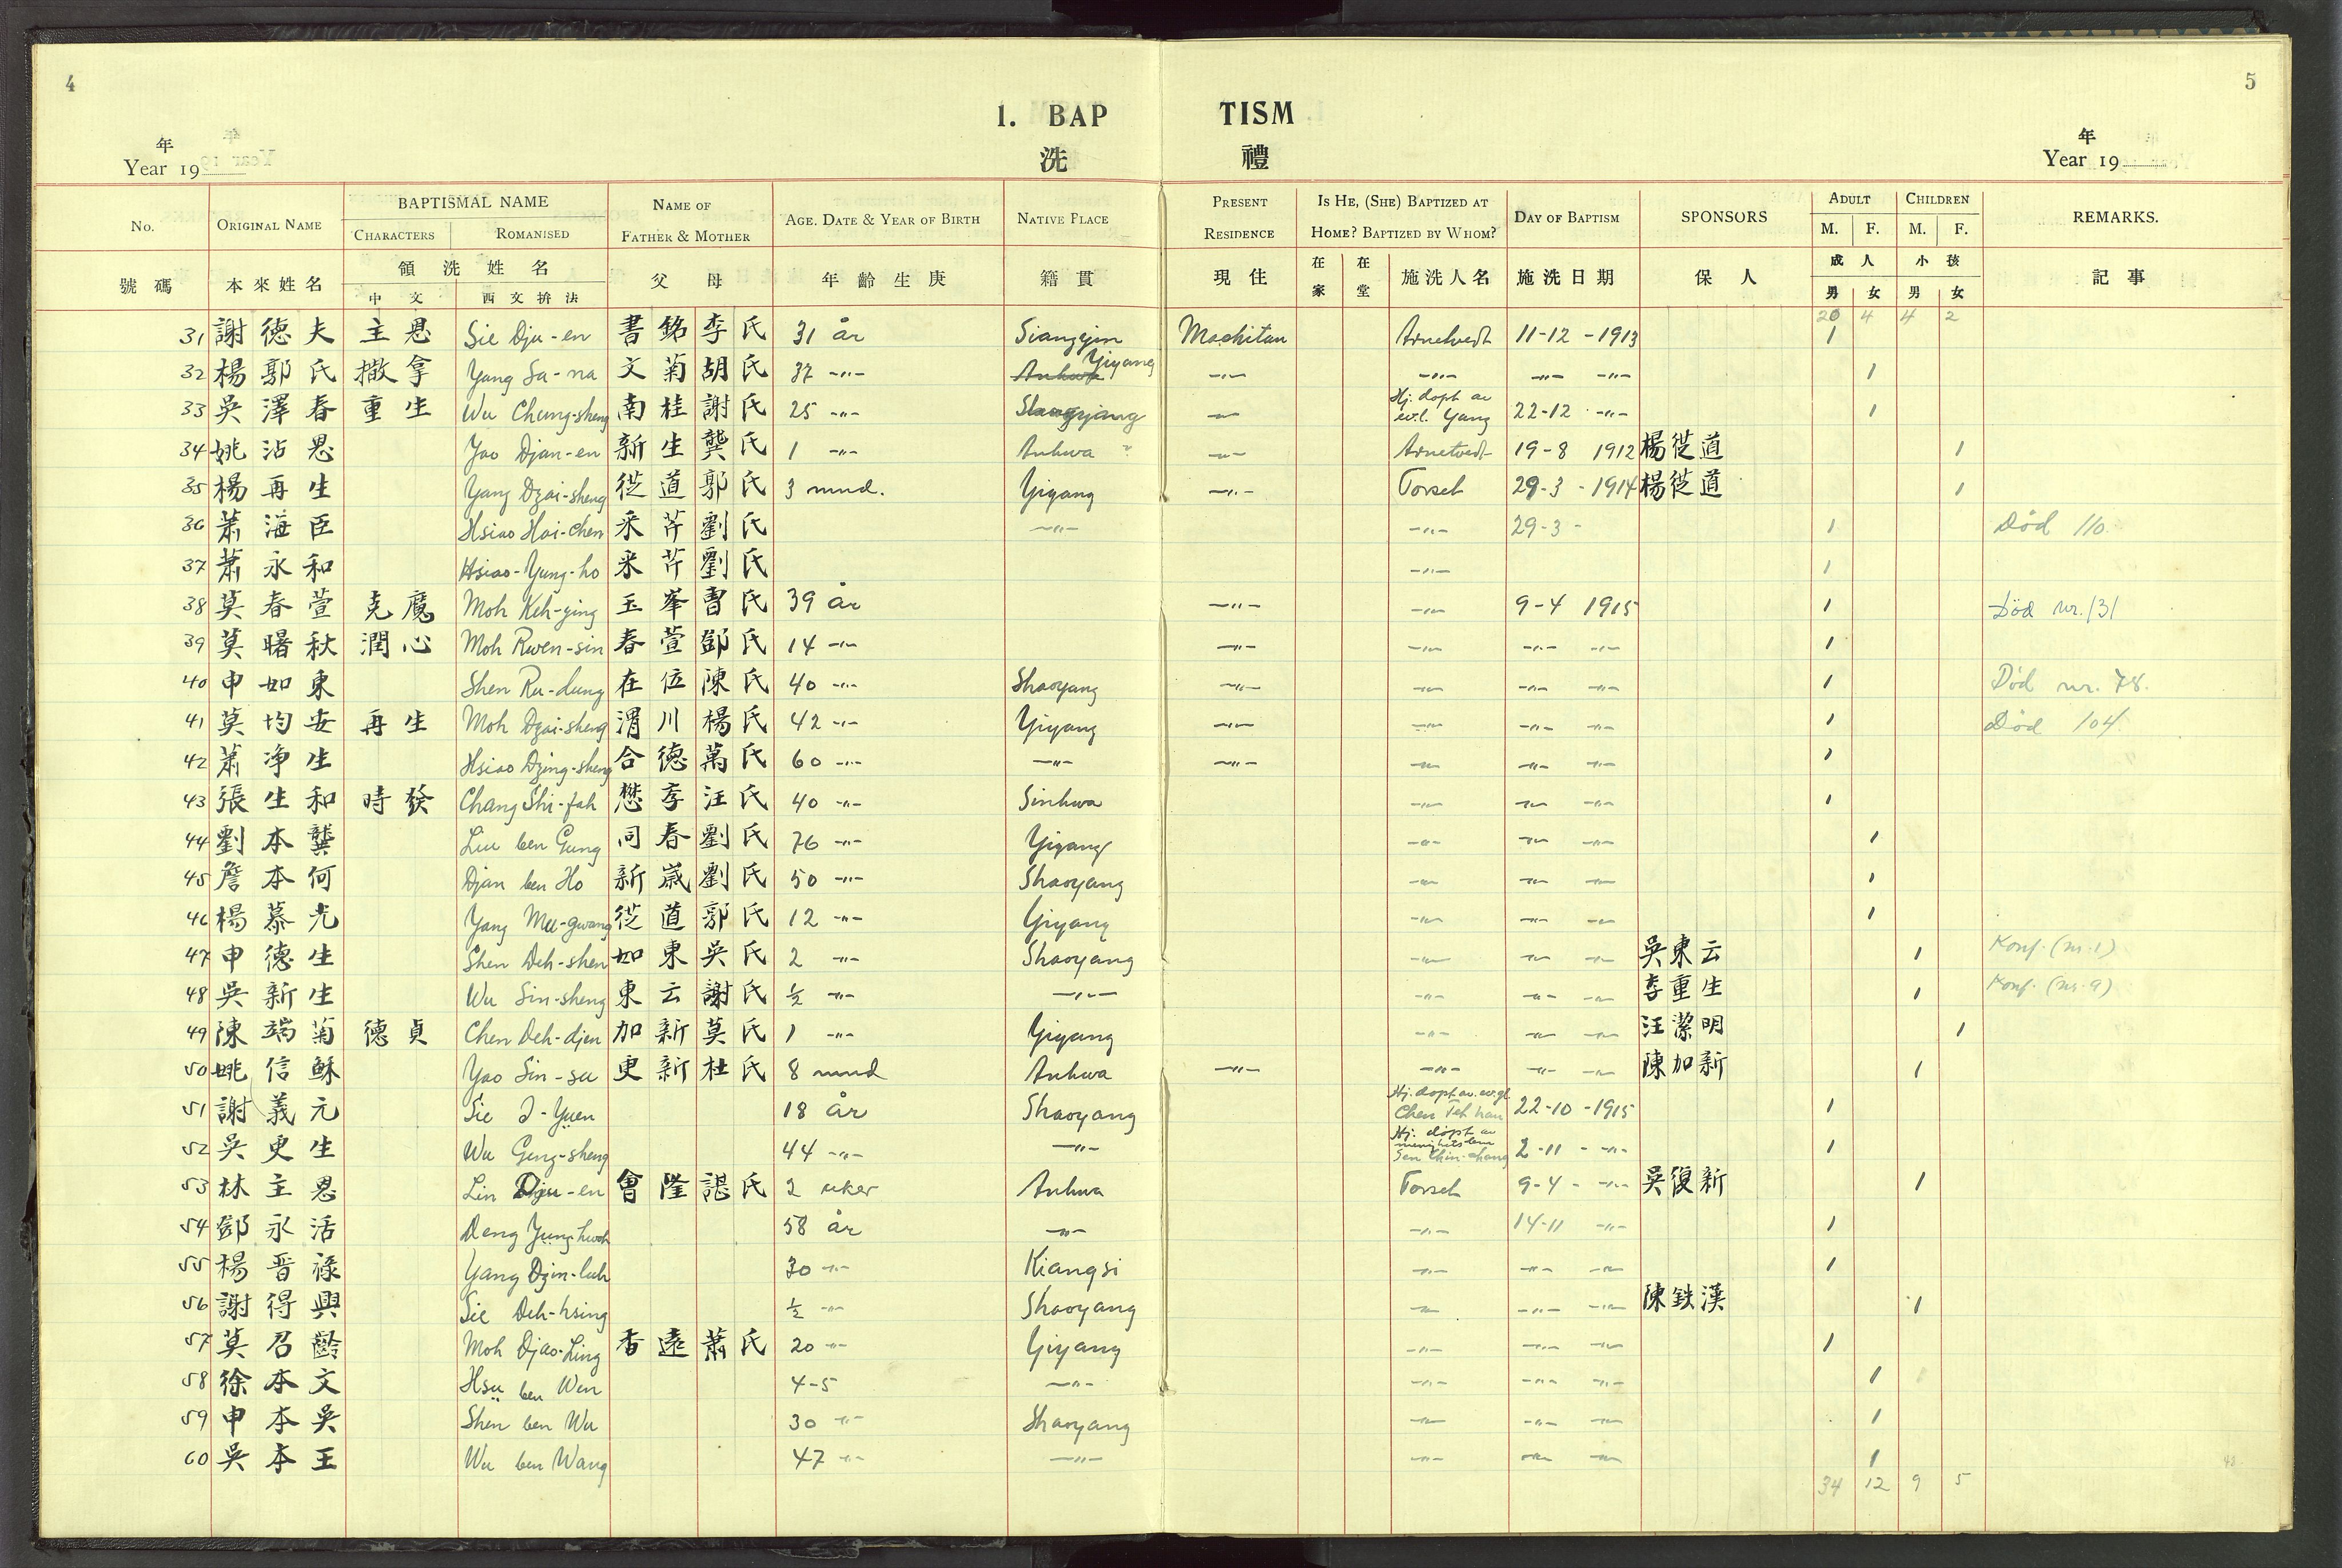 4
5
1. BAP TISM
洗 禮
年
Year 19
年
Year 19
No. ORIGINAL NAME BAPTISMAL NAME CHARACTERS ROMANISED NAME OF FATHER & MOTHER AGE. DATE & YEAR OF BIRTH NATIVE PLACE PRESENT RESIDENCE IS HE, (SHE) BAPTIZED AT HOME? BAPTIZED BY WHOM? DAY OF BAPTISM SPONSORS ADULT M. F. CHILDREN M. F. REMARKS.
號碼 本來姓名 領洗姓名 中文 西文拚法 父母 年齡生庚 籍貫 現住 在家 在堂 施洗人名 施洗日期 保人 成人 男 女 小孩 男 女 記事
20 4 4 2
31 謝德夫 主恩 Sie Dju-en 書銘李氏 31 år Siangyin Machitan Arnetvedt 11-12-1913 1
32 楊郭氏 撒拿 Yang Sa-na 文菊胡氏 37 -"- Anhwa Yiyang -"- -"- -"- -"- 1
33 吳澤春 重生 Wu Chung-sheng 南桂謝氏 25 -"- -"- Hj. døpt av ev.l. Yang 22-12 -"- 1
34 姚沾恩 Yao Djan-en 新生龔氏 1 -"- Anhwa -"- Arnetvedt 19-8 1912 楊從道 1
35 楊再生 Yang Dzai-sheng 從道郭氏 3 mnd. Yiyang -"- Torset 29-3-1914 楊從道 1
36 蕭海臣 Hsiao Hai-chen 采芹劉氏 -"- -"- 29-3- 1 Död 110
37 蕭永和 Hsiao-Yung-ho 采芹劉氏 -"- 1
38 莫春萱 克魔 Moh Keh-ying 玉峯曹氏 39 år -"- -"- 9-4 1915 1 Död nr. 131
39 莫曙秋 潤心 Moh Rwen-sin 春萱鄧氏 14 -"- -"- -"- -"- -"- 1
40 申如東 Shen Ru-dung 在位陳氏 40 -"- Shaoyang -"- -"- -"- -"- 1 Död nr. 78.
41 莫均安 再生 Moh Dzai-sheng 渭川楊氏 42 -"- Yiyang -"- -"- -"- -"- 1 Död 104
42 蕭净生 Hsiao Dzing-sheng 合德萬氏 60 -"- -"- -"- -"- -"- -"- 1
43 張生和 時發 Chang Shi-fah 懋李汪氏 40 -"- Sinhwa -"- -"- -"- 1
44 劉本龔 Liu ben Gung 同春劉氏 76 -"- Yiyang -"- -"- -"- 1
45 詹本何 Djan ben Ho 新嵗劉氏 50 -"- Shaoyang -"- -"- -"- 1
46 楊慕光 Yang Mu-gwang 從道郭氏 12 -"- Yiyang -"- -"- -"- 1
47 申德生 Shen Deh-shen 如東吳氏 2 -"- Shaoyang -"- -"- -"- 吳東云 1 Konf. (nr. 1)
48 吳新生 Wu Sin-sheng 東云謝氏 ½ -"- -"- -"- -"- -"- 李重生 1 Konf. (nr. 9)
49 陳端菊 德貞 Chen Deh-djen 加新莫氏 1 -"- Yiyang -"- -"- -"- 汪潔明 1
50 姚信穌 Yao Sin-su 更新杜氏 8 mnd Anhwa -"- -"- -"- -"- 陳加新 1
51 謝義元 Sie I-Yuen 18 år Shaoyang Hj. døpt av. ev.gl Chen Teh han 22-10-1915 1
52 吳更生 Wu Geng-sheng 44 -"- -"- Hj. døpt av menighetslem Sen Chin-chang 2-11- -"- 1
53 林主恩 Lin Dju-en 會隆諶氏 2 uker Anhwa Torset 9-4- -"- 吳復新 1
54 鄧永活 Deng Yung-hwoh 58 år -"- -"- 14-11 -"- 1
55 楊晋祿 Yang Dzin-luh 30 -"- Kiangsi -"- -"- -"- 1
56 謝得興 Sie Deh-hsing ½ -"- Shaoyang -"- -"- -"- 陳鉄漢 1
57 莫召齡 Moh Djao-Ling 香遠蕭氏 20 -"- Yiyang -"- -"- -"- 1
58 徐本文 Hsu ben Wen 4-5 -"- -"- -"- -"- 1
59 申本吳 Shen ben Wu 30 -"- Shaoyang -"- -"- -"- 1
60 吳本王 Wu ben Wang 47 -"- -"- -"- -"- -"- 1
34 12 9 5